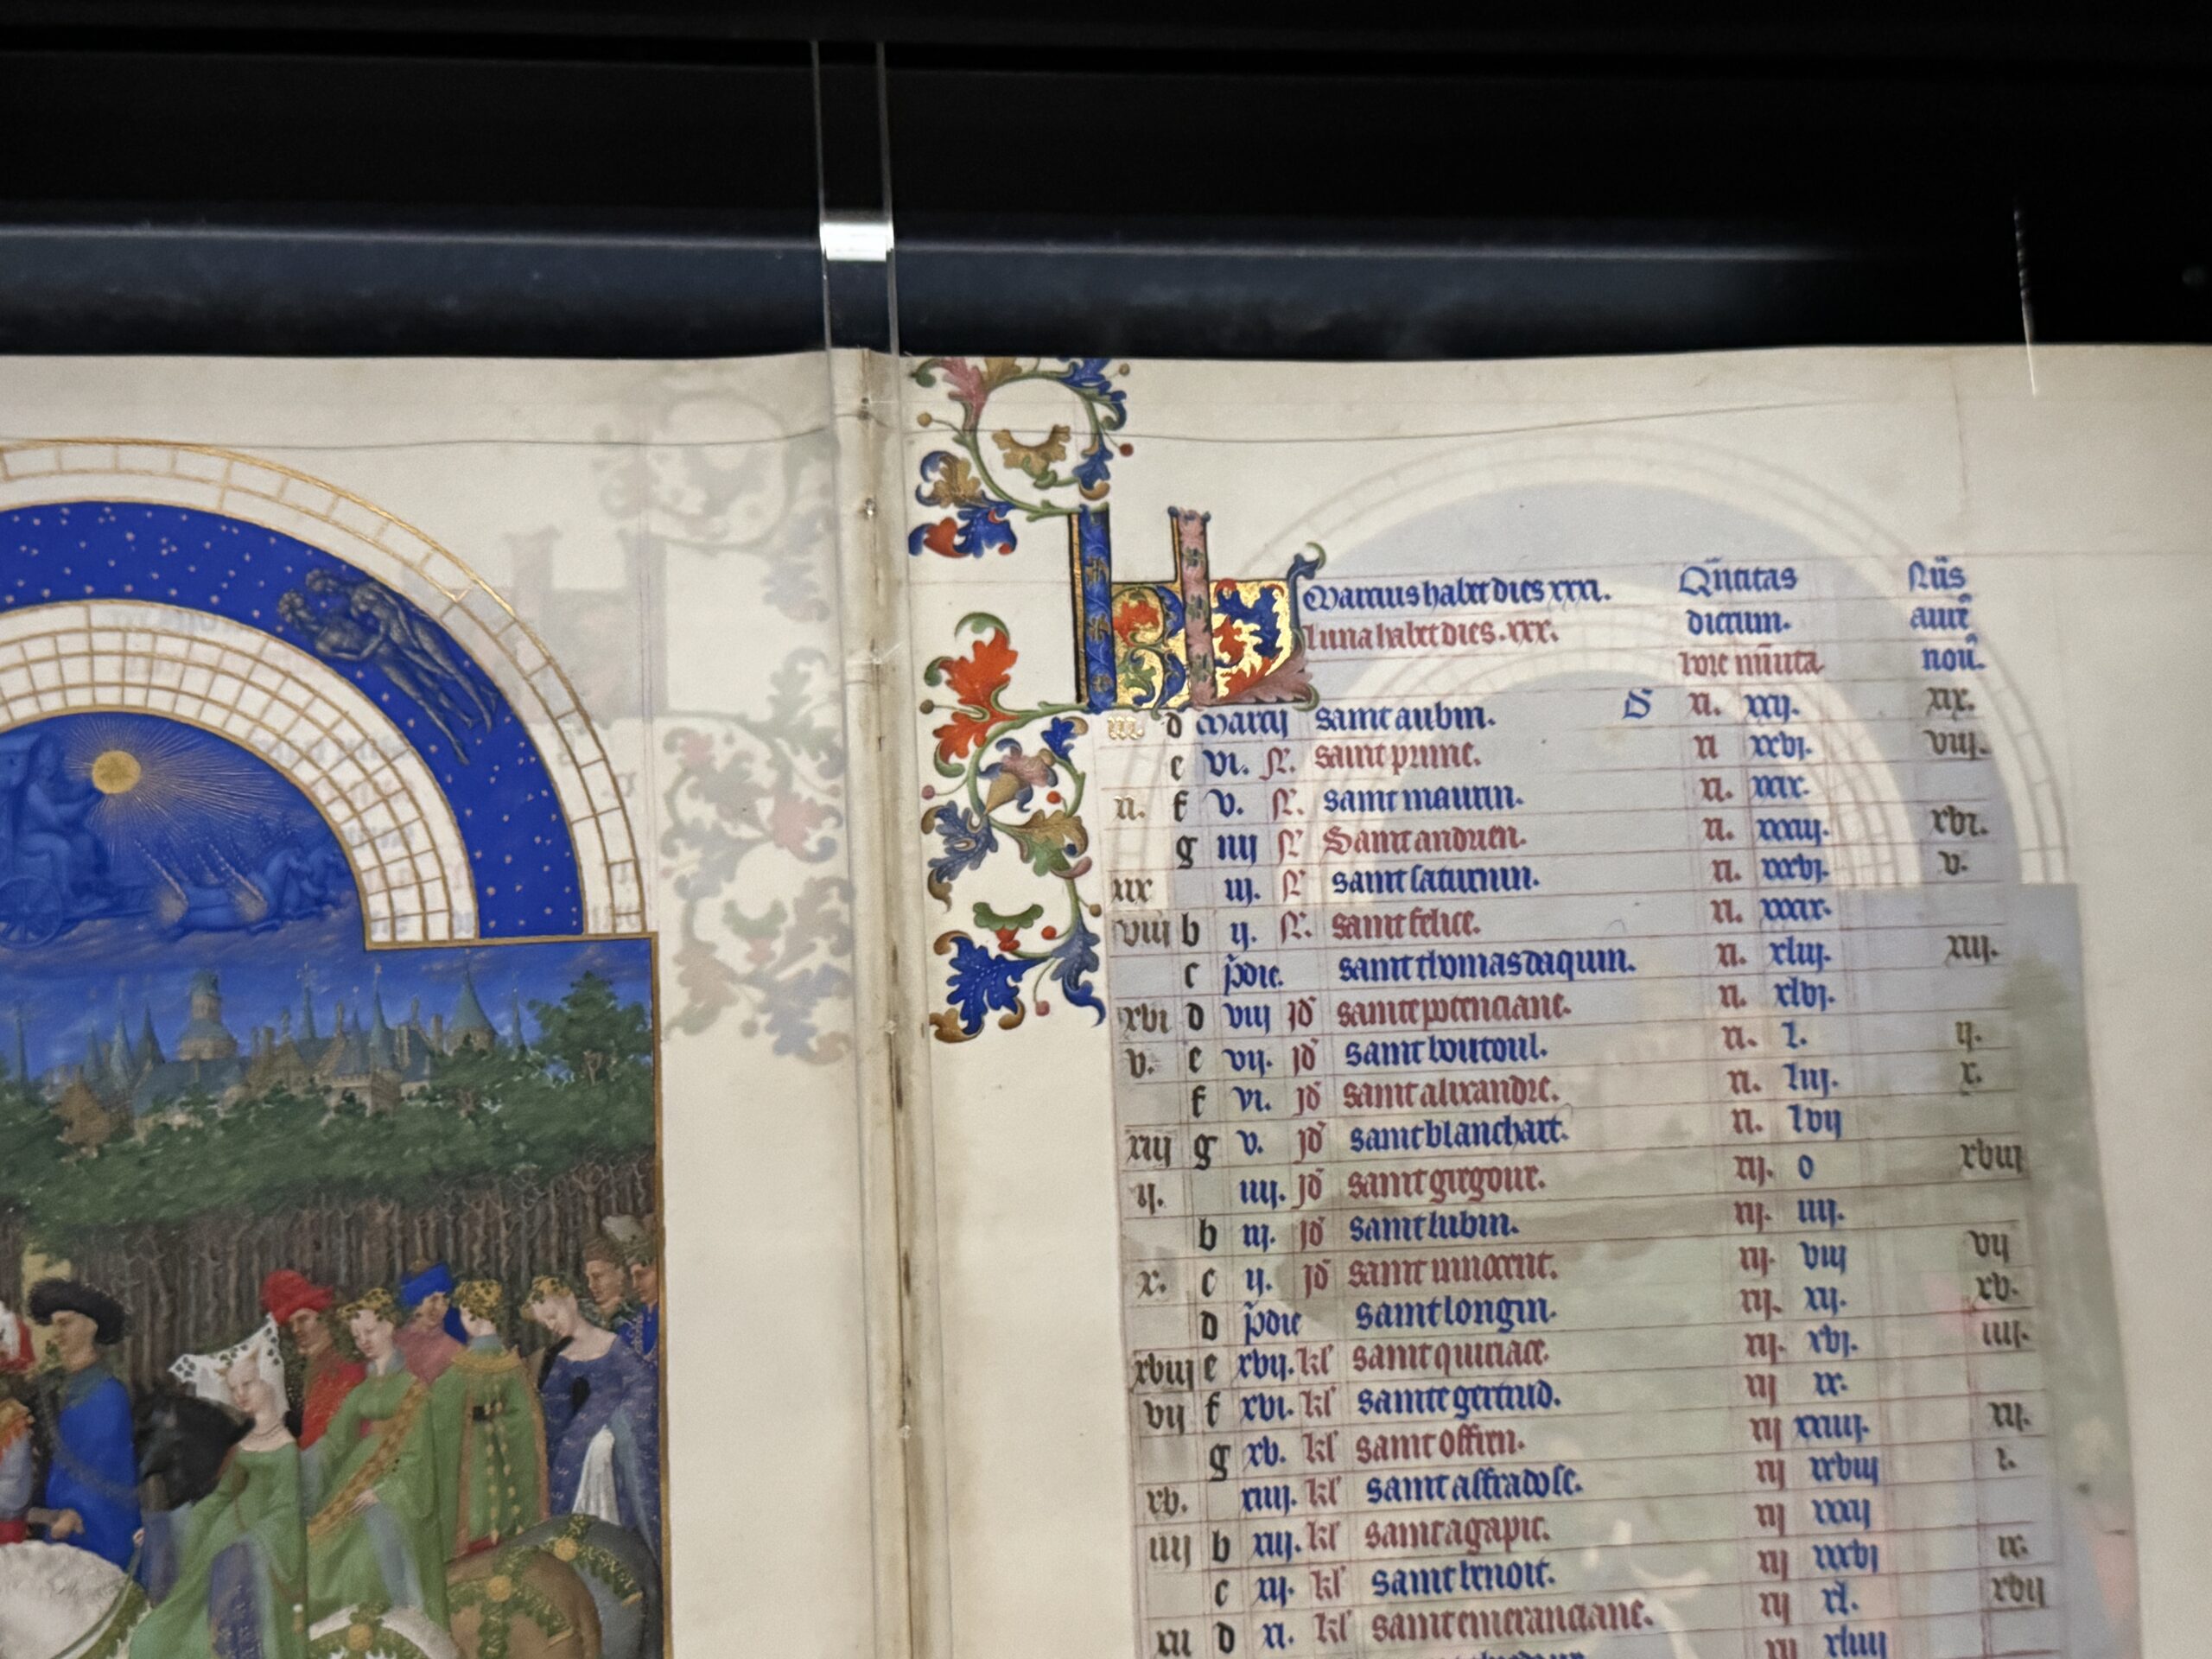 KL Marcius habet dies xxxi. Qñtitas Nũs
luna habet dies. xxx. dierum. aurē
hore mīuta noū.
iii. d marcij saint aubin. S xi. xxij. xix.
e vi. N. saint prime. xi xxvj. viij.
xi. f v. N. saint maurin. xi. xxx.
g iiij N Saint andrien. xi. xxxiij. xvi.
xix iij. N saint saturnin. xi. xxxvj. v.
viij b ij. N. saint felice. xi. xxxix.
c p̃die. saint thomas daquin. xi. xliij. xiij.
xvi d viij jd sainte potenciane. xi. xlvj.
v. e vij. jd saint boutoul. xi. l. ij.
f vi. jd saint alixandre. xi. liij. x.
xiij g v. jd saint blanchart. xi. lvij
ij. iiij. jd saint grigoire. xij. o xviij
b iij. jd saint lubin. xij. iiij.
x. c ij. jd saint innocent. xij. viij vij
d p̃die saint longin. xij. xij. xv.
xviij e xvij. kl saint quiriace. xij. xvj. iiij.
vij f xvi. kl sainte gertrud. xij xx.
g xv. kl saint offien. xij xxiiij. xij.
xv. xiiij. kl saint affradose. xij xxviij i.
iiij b xiij. kl saint agapit. xij xxxij
c xij. kl saint benoit. xij xxxvj ix.
xij d xi. kl sainte emeranciane. xij xl. xvij
xij xliiij